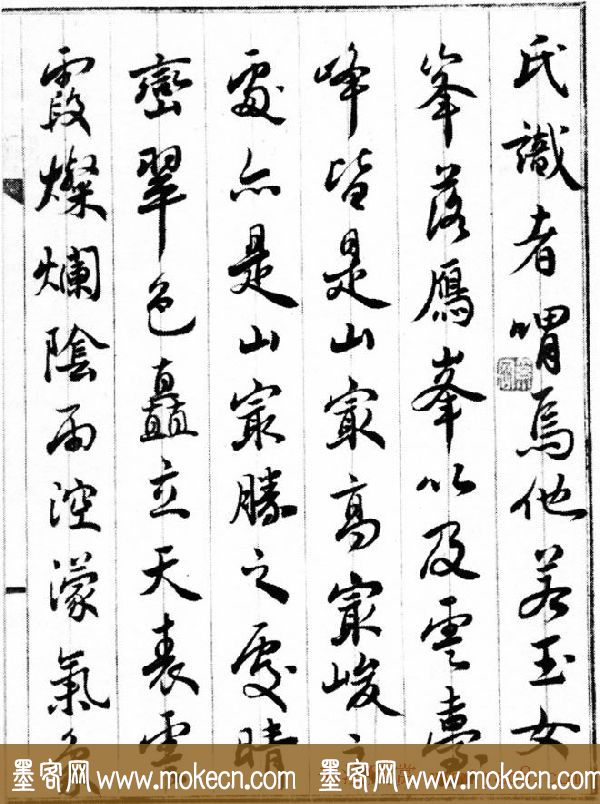 氏識者喟焉他若玉女
峯落鴈峯以及雲臺
峰皆是山㝡高㝡峻之
處亦是山㝡勝之處晴
巒翠色矗立天表雲
霞燦爛陰雨涳濛氣象
墨客网 www.mokecn.com 墨客网 www.mokecn.com